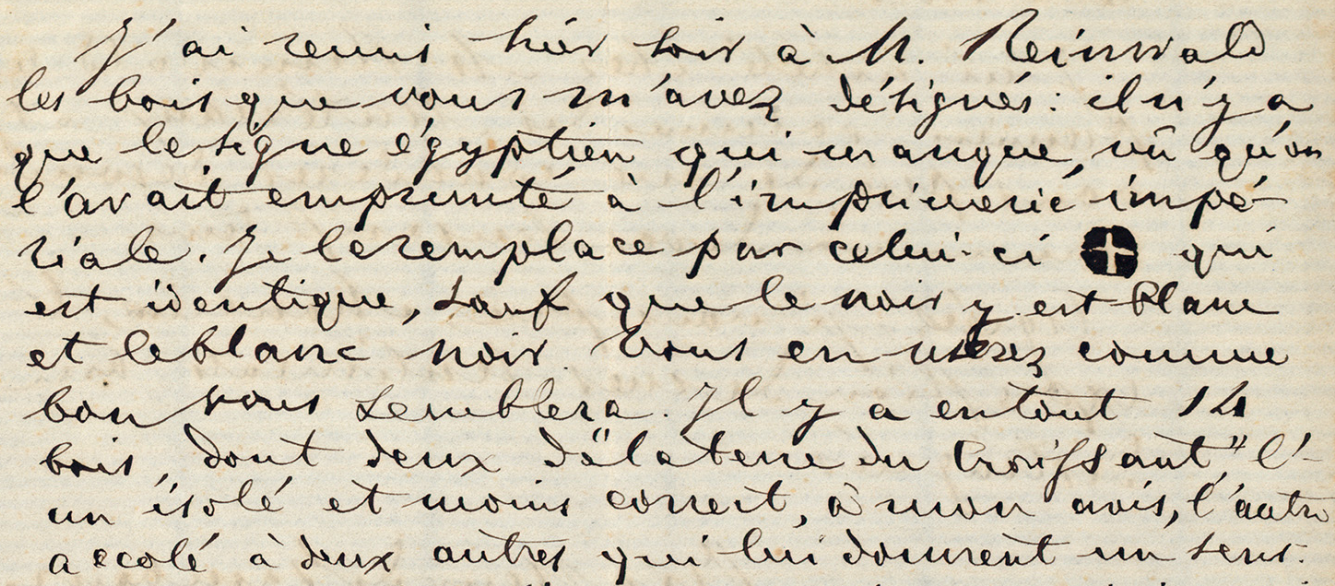 J'ai remis hier soir à M. Reinwald
les bois que vous m'avez désignés: il n'y a
que le signe égyptien qui manque, vû qu'on
l'avait emprunté à l'imprimerie impé-
riale. Je le remplace par celui-ci qui
est identique, sauf que le noir y est blanc
et le blanc noir. Vous en userez comme
bon vous semblera. Il y a en tout 14
bois, dont deux d'"élatene du Croissant," l'-
un isolé et moins correct, à mon avis, l'autre
accolé à deux autres qui lui donnent un sens.